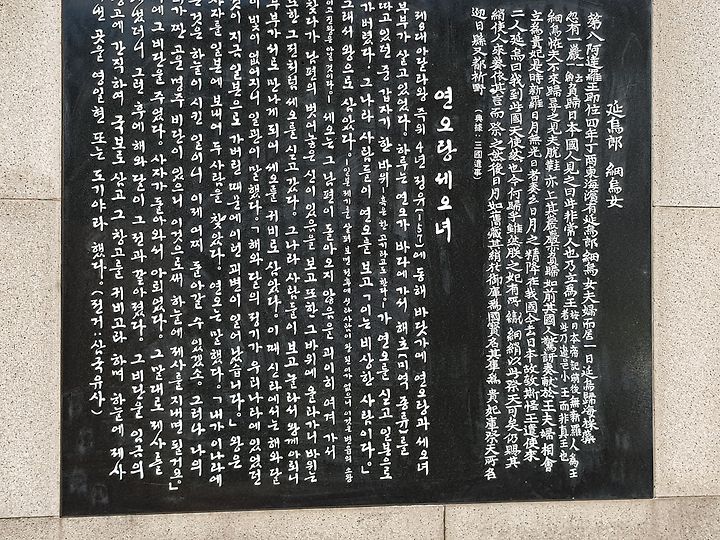 延烏郎 細烏女
第八阿達羅王即位四年丁酉東海濱有延烏郎細烏女夫婦而居一日延烏歸海採藻
忽有一巖(一云一魚)負歸日本國人見之曰此非常人也乃立爲王(按日本帝記前後無新羅人爲王者此乃邊邑小王而非眞王也)
細烏怪夫不來歸尋之見夫脫鞋亦上其巖巖亦負歸如前其國人驚訝奏獻於王夫婦相會
立爲貴妃是時新羅日月無光日者奏云日月之精降在我國今去日本故致斯怪王遣使求
二人延烏曰我到此國天使然也今何歸乎雖然朕之妃有所織細綃以此祭天可矣仍賜其
綃使人來奏依其言而祭之然後日月如舊藏其綃於御庫爲國寶名其庫爲貴妃庫祭天所名
迎日縣又都祈野 (典據·三國遺事)
연오랑 세오녀
제8대 아달라왕 즉위 4년 정유(157)에 동해 바닷가에 연오랑과 세오녀
부부가 살고 있었다. 하루는 연오가 바다에 가서 해초(미역 종류)를
따고 있던 중 갑자기 한 바위(혹은 한 고기라고도 한다.)가 연오를 싣고 일본으로
가버렸다. 그나라 사람들이 연오를 보고 「이는 비상한 사람이다.」
그래서 왕으로 삼았다.
세오는 그 남편이 돌아오지 않음을 괴이히 여겨 가서
찾다가 남편의 벗어놓은 신이 있음을 보고 또한 그 바위에 올라가니 바위는
또한 그 전처럼 세오를 싣고 갔다. 그나라 사람들이 보고 놀라서 왕께 아뢰니
부부가 서로 만나게 되어 세오를 귀비로 삼았다. 이 때 신라에서는 해와 달
이 빛이 없어지니 일관이 말했다. 「해와 달의 정기가 우리나라에 있었던
것이 지금 일본으로 가버린 때문에 이런 괴변이 일어났습니다.」 왕은
사자를 일본에 보내어 두 사람을 찾았다. 연오는 말했다. 「내가 이 나라에
온 것은 하늘이 시킨 일이니 이제 어찌 돌아갈 수 있겠소. 그러나 나의
가 짠 고운 명주 비단이 있으니 이것으로써 하늘에 제사를 지내면 될거요.」
에 그 비단을 주었다. 사자가 돌아와서 아뢰었다. 그 말대로 제사를
냈더니 그런 후에 해와 달이 그전과 같아졌다. 그 비단을 임금의
창고에 간직하여 국보로 삼고 그 창고를 귀비고라 하며 하늘에 제사
낸 곳을 영일현 또는 도기야라 했다. (전거 삼국유사)